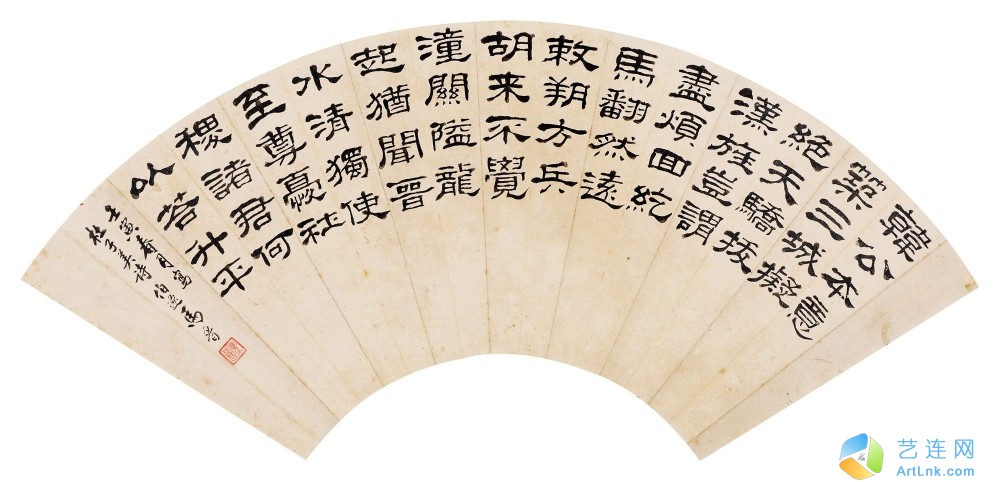 韓公本意
築三城擬
絕天驕拔
漢旌豈謂
盡煩回紇
馬翻然遠
救朔方兵
胡来不覺
潼關隘龍
起猶聞晉
水清獨使
至尊憂社
稷諸君何
以荅升平
壬寅春月寫
杜子美詩 伯逸馬晉
艺连网
ArtLnk.com